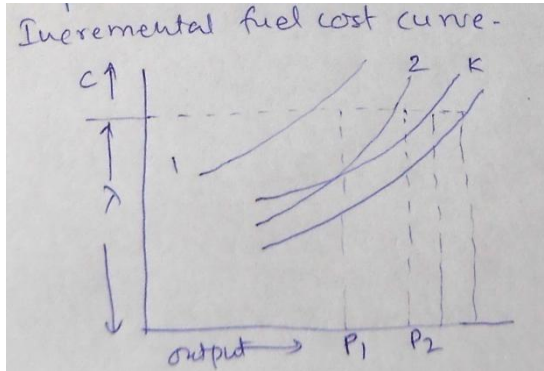 Incremental fuel cost curve.
C↑
2
K
1
λ
output →
P1
P2